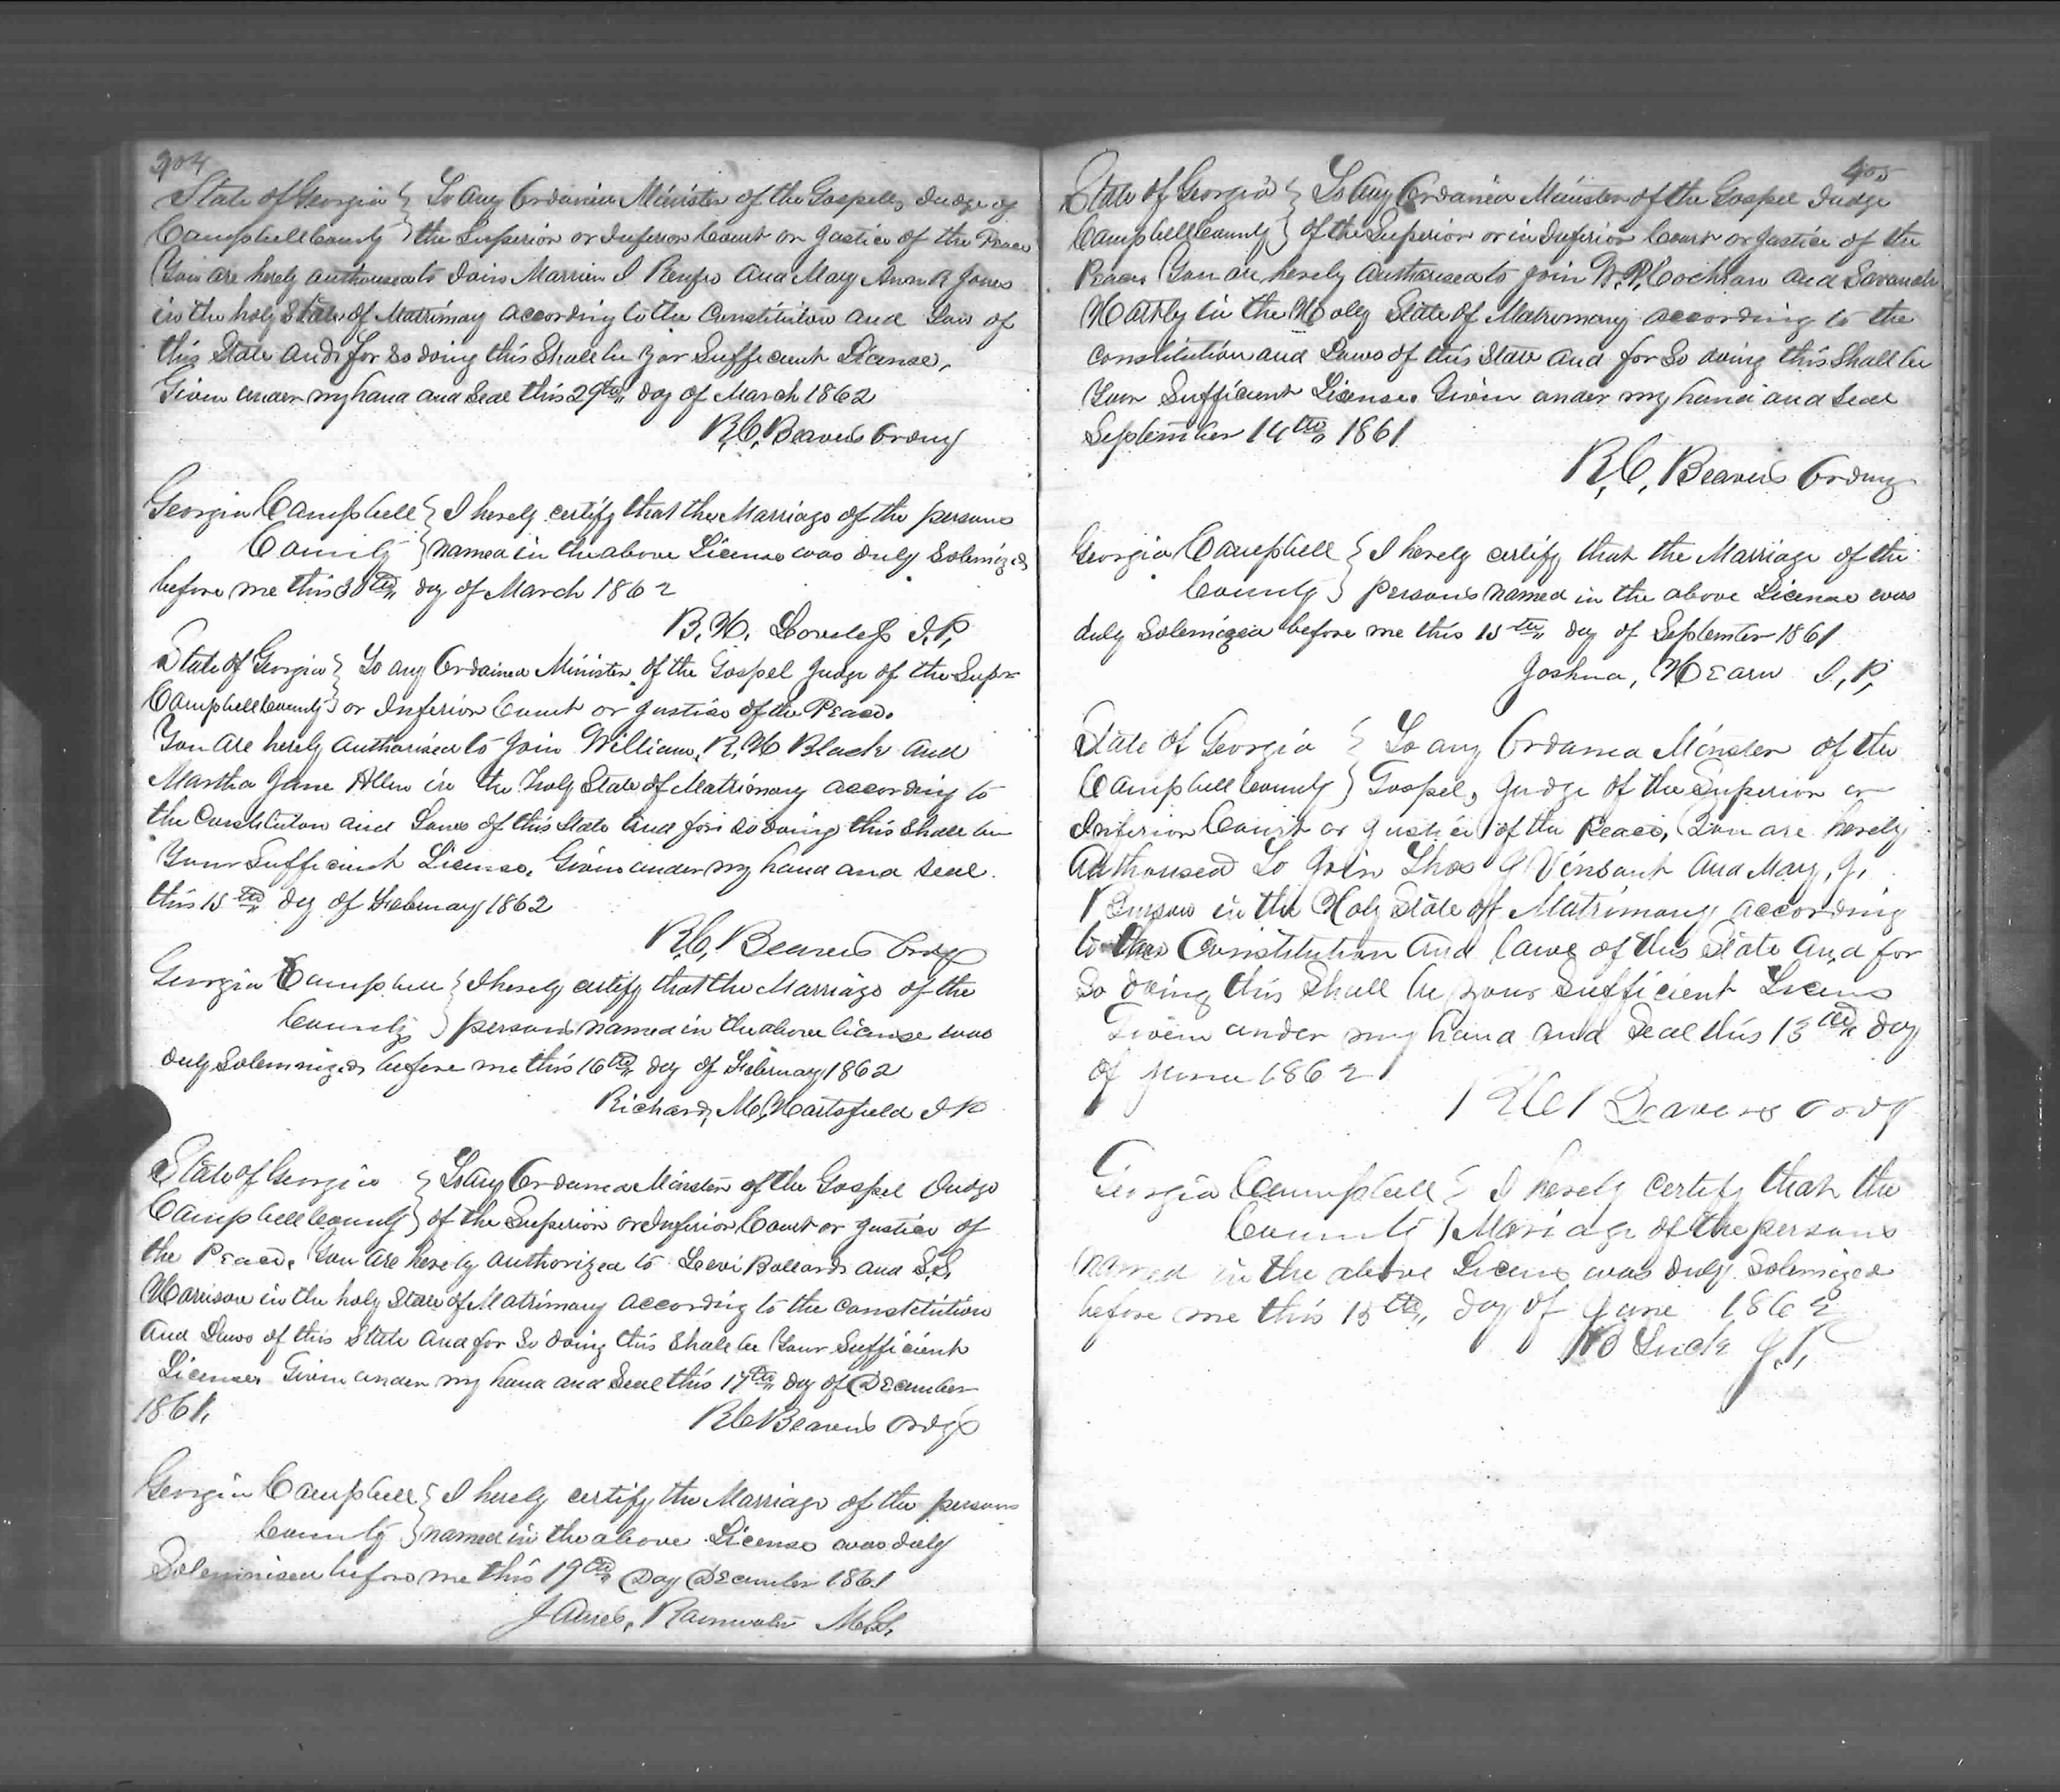 404
State of Georgia } To any Ordained Minister of the Gospel, Judge of
Campbell County } the Superior or Inferior Court or Justice of the Peace
You are herely authorised to Join Marrien I Renfro and Mary Ann R Jones
in the holy State of Matrimony according to the Constitution and Law of
this State and for So doing this Shall be yor Sufficient License,
Given under my hand and Seal this 29th day of March 1862
R. C. Beavers Ordny
Georgia Campbell } I herely certify that the Marriage of the persons
County } named in the above License was duly Solemnized
before me this 30th day of March 1862
B. H. Loveless J. P.
State of Georgia } To any Ordained Minister of the Gospel Judge of the Supr
Campbell County } or Inferior Court or Justice of the Peace.
You are herely authorised to Join William, R. H Black and
Martha Jane Allen in the holy State of Matrimony according to
the Constitution and Laws of this State and for so doing this Shall be
Your Sufficient License. Given under my hand and seal.
this 15th day of February 1862
R. C. Beavers Ordy
Georgia Campbell } I herely certify that the Marriage of the
County } persons named in the above license was
duly Solemnized before me this 16th day of February 1862
Richard, M. Hartsfield J P
State of Georgia } To any Ordained Minister of the Gospel Judge
Campbell County } of the Superior or Inferior Court or Justice of
the Peace. You are herely authorized to Levi Ballard and S. S.
Harrison in the holy State of Matrimony according to the Constitution
and Laws of this State and for So doing this Shall be Your Sufficient
License Given under my hand and Seal this 17th day of December
1861.
R C Beavers Ordy
Georgia Campbell } I herely certify the Marriage of the persons
County } named in the above License was duly
Solemnised before me this 19th Day December 1861
James, Rainwater M. G.
405
State of Georgia } To any Ordained Minister of the Gospel Judge
Campbell County } of the Superior or in Inferior Court or Justice of the
Peace You are herely authorised to join W. P. Cochran and Savanah
in the Holy State of Matrimony according to the
constitution and Laws of this State and for So doing this Shall be
Your Sufficient License. Given under my hand and Seal
September 14th 1861
R. C. Beavers Ordny
Georgia Campbell } I herely certify that the Marriage of the
County } persons named in the above License was
duly Solemnized before me this 15th day of September 1861
Joshua, Hearn J. P.
State of Georgia } To any Ordained Minister of the
Campbell County } Gospel, Judge of the Superior or
Inferior Court or Justice of the Peace, You are herely
Authorised To Join Thos J Vinsant and Mary, J,
in the Holy State of Matrimony according
to the Constitution and laws of this State and for
So doing this Shall be your Sufficient Licens
Given under my hand and Seal this 13th day
of June 1862
R C Beavers Ordy
Georgia Campbell } I herely certify that the
County } Mariage of the persons
named in the above Licens was duly Solemnized
before me this 15th day of June 1862
J. P.